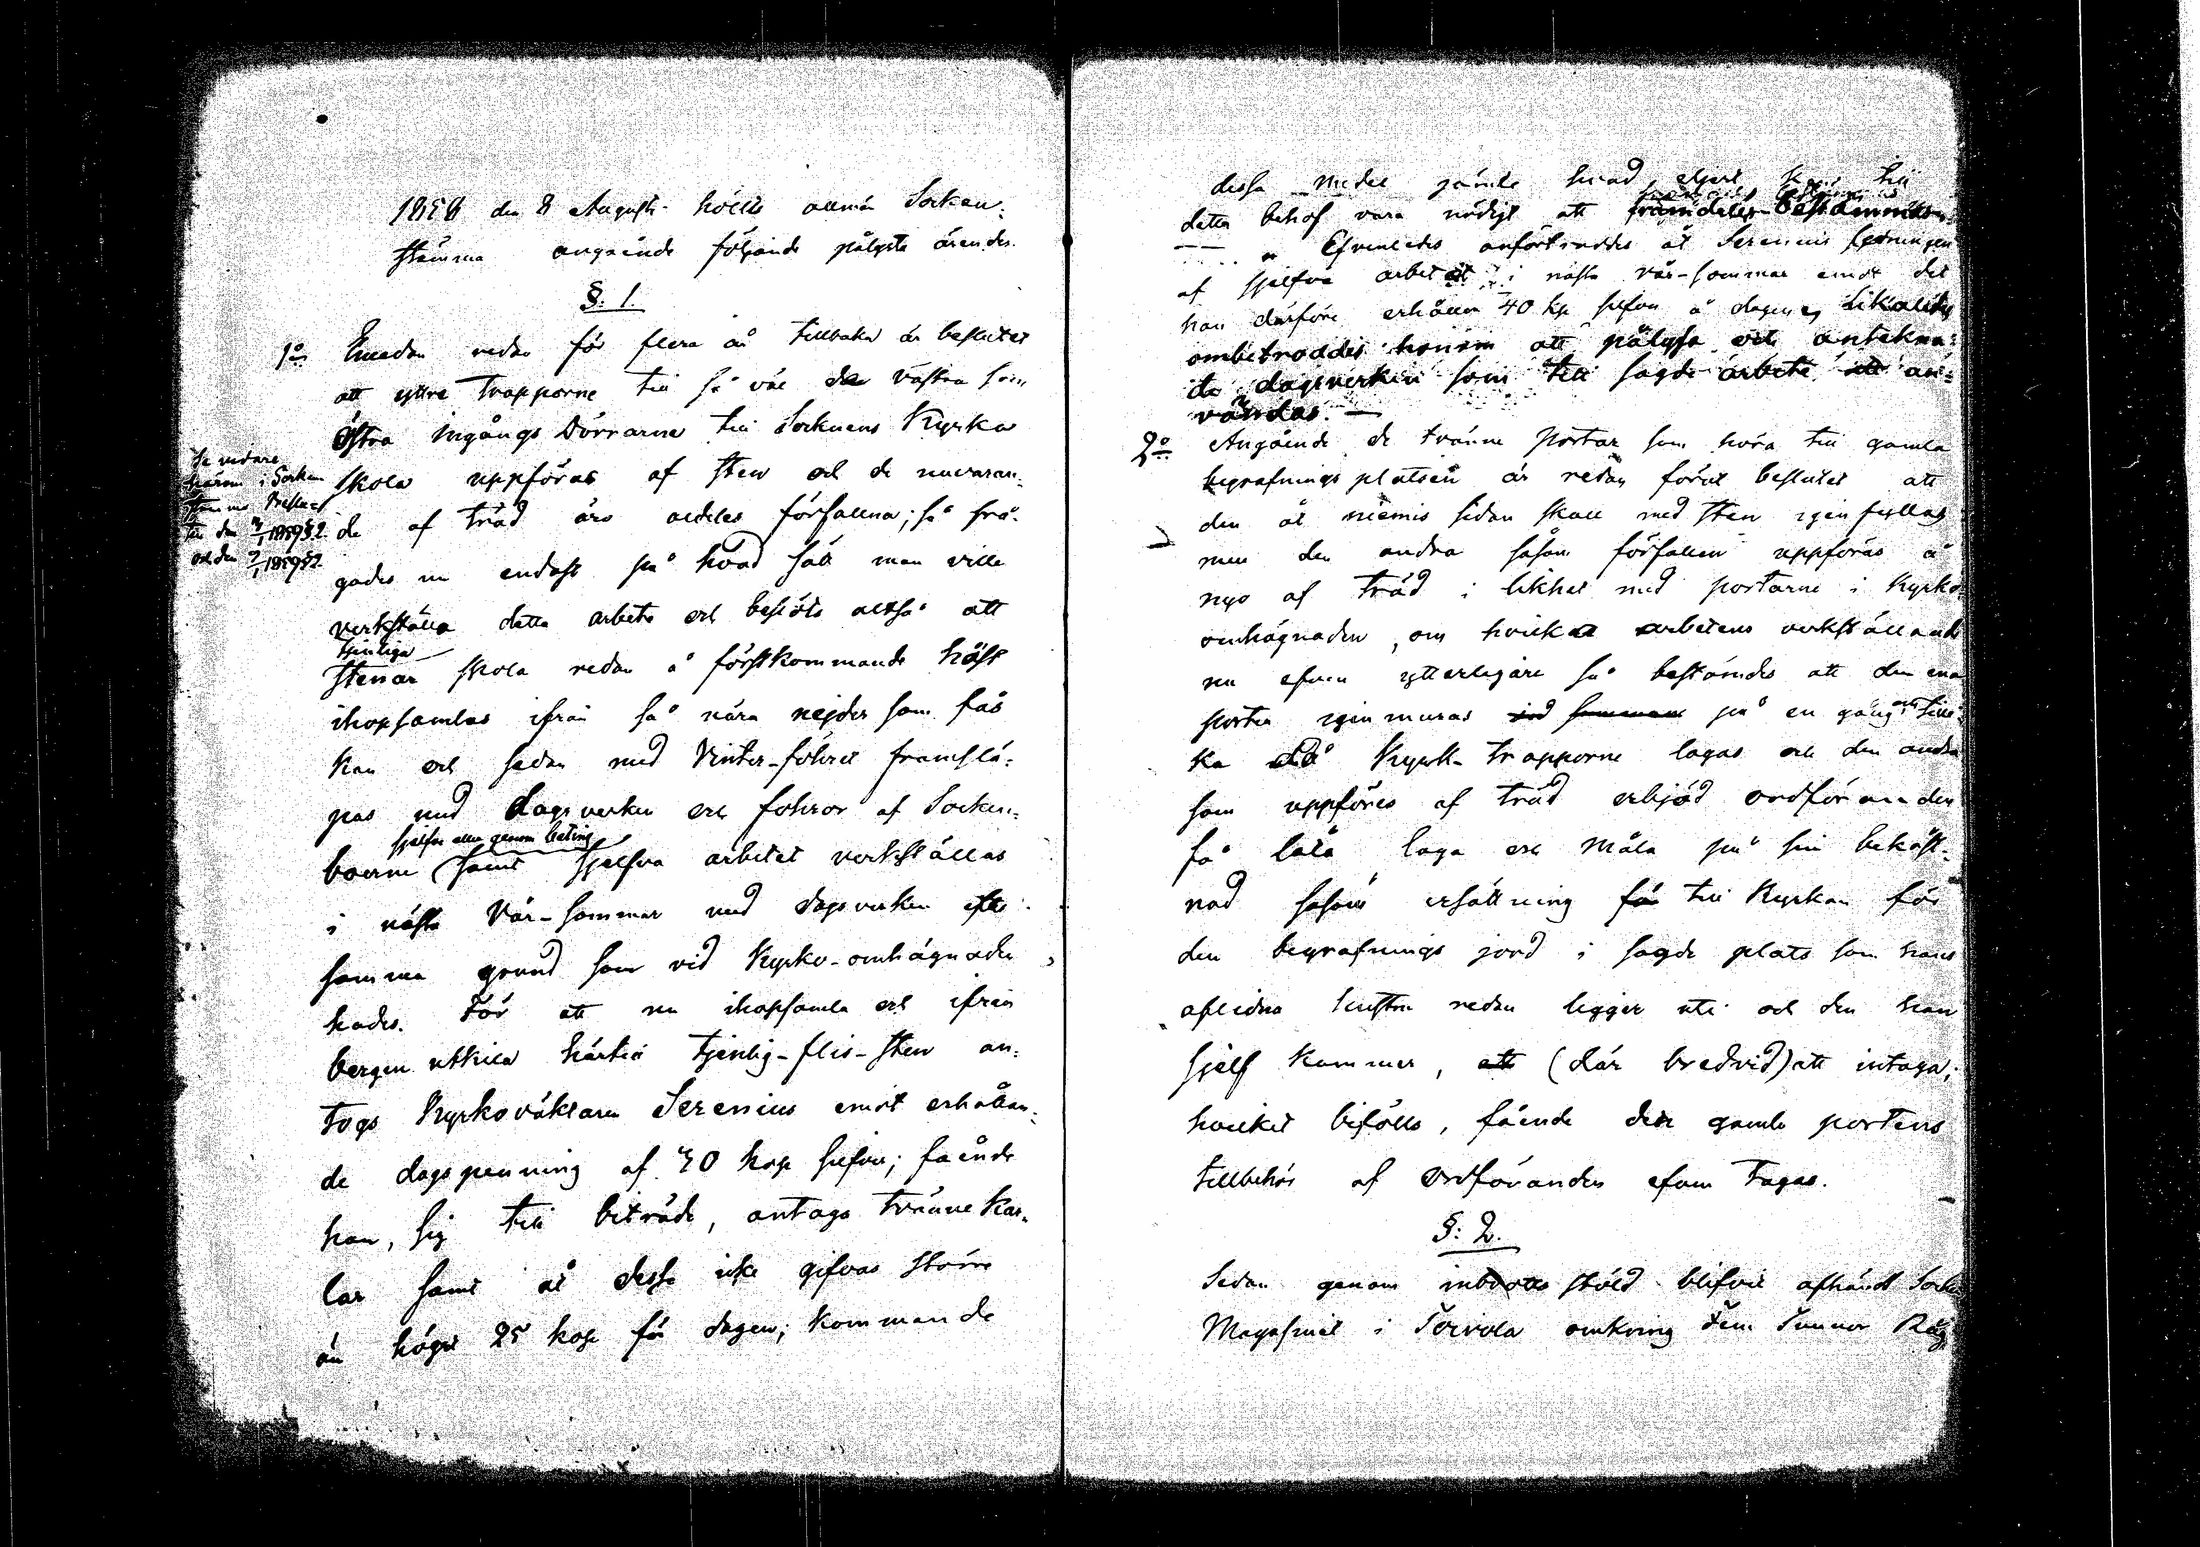 1858 den 8 Augusti hölls allmän Socken-
stämma angående följande pålysta ärender.
§: 1.
1o Emedan redan för flera år tillbaka är beslutet
att yttre Trapporne till så väl de västra som
Östra Ingångs Dörrarne till Socknens Kyrka
skola uppföras af sten och de nuvaran-
de af träd äro aldeles förfallna; så frå-
gades nu endast på hvad sätt man ville
verkställa detta arbete och beslöts altså att
tjenliga
stenar skola redan å förstkommande höst
ihopsamlas ifrån så nära nejder som fås
kan och sedan med Vinter-föhret framslä-
pas med dagsverken och fohror af Socken-
sjelfva eller genom beting
boerne samt sjelfva arbetet verkställas
i nästa Vår-sommar med dagsverken efter
samma grund som vid Kyrko-omhägnaden
hades. För att nu ihopsamla och ifrån
bergen utkila härtill tjenlig-flis-sten an-
togs Kyrkoväktaren Serenius emot erhållan-
de dagspenning af 40 kop silfver; fående
han, sig till biträde, antaga tvänne Kar-
lar samt åt dessa icke gifvas större
än högst 25 kop för dagen; kommande
Se vidare
härom i Socken
stämmo Beslut
1859 §2.
och den 1859 §2.
dessa medel jämte hvad eljest till
detta behof vara nödigt att framdeles bestämmas.
Efvenledes anförtroddes åt Serenius ledningen
af sjelfva arbetet i nästa vår-sommar emot det
han därföre erhåller 40 kp silfver å dagen, Likaledes
ombetroddes honom att pålysa och antekna
de dagsverken som till sagde arbete an-
vändas. —
2o Angående de tvänne Portar som höra till gamla
begrafningsplatsen är redan förut beslutet att
den åt niemis sidan skall med sten igenfyllas
men den andra såsom förfallen uppföras å
nyo af träd i likhet med portarne i Kyrko-
omhägnaden, om hvilka arbetens verkställande
nu efven ytterligare så bestämdes att den ena
porten igenmuras på en gång
ka då Kyrk-trapporne lagas och den andra
som uppföres af träd erbjöd ordföranden
få låta laga och måla på sin bekåst-
nad såsom ersättning för till Kyrkan för
den begrafnings jord i sagde plats som hans
aflidna hustru redan ligger uti och den han
sjelf kommer, att (där bredvid) att intaga;
hvilket bifölls, fående den gamla portens
tillbehör af ordföranden efven tagas.
§: 2.
Sedan genom inbrotts stöld blifvit afhändt Socken
Magasinet i Toivola omkring Fem Tunnor Råg